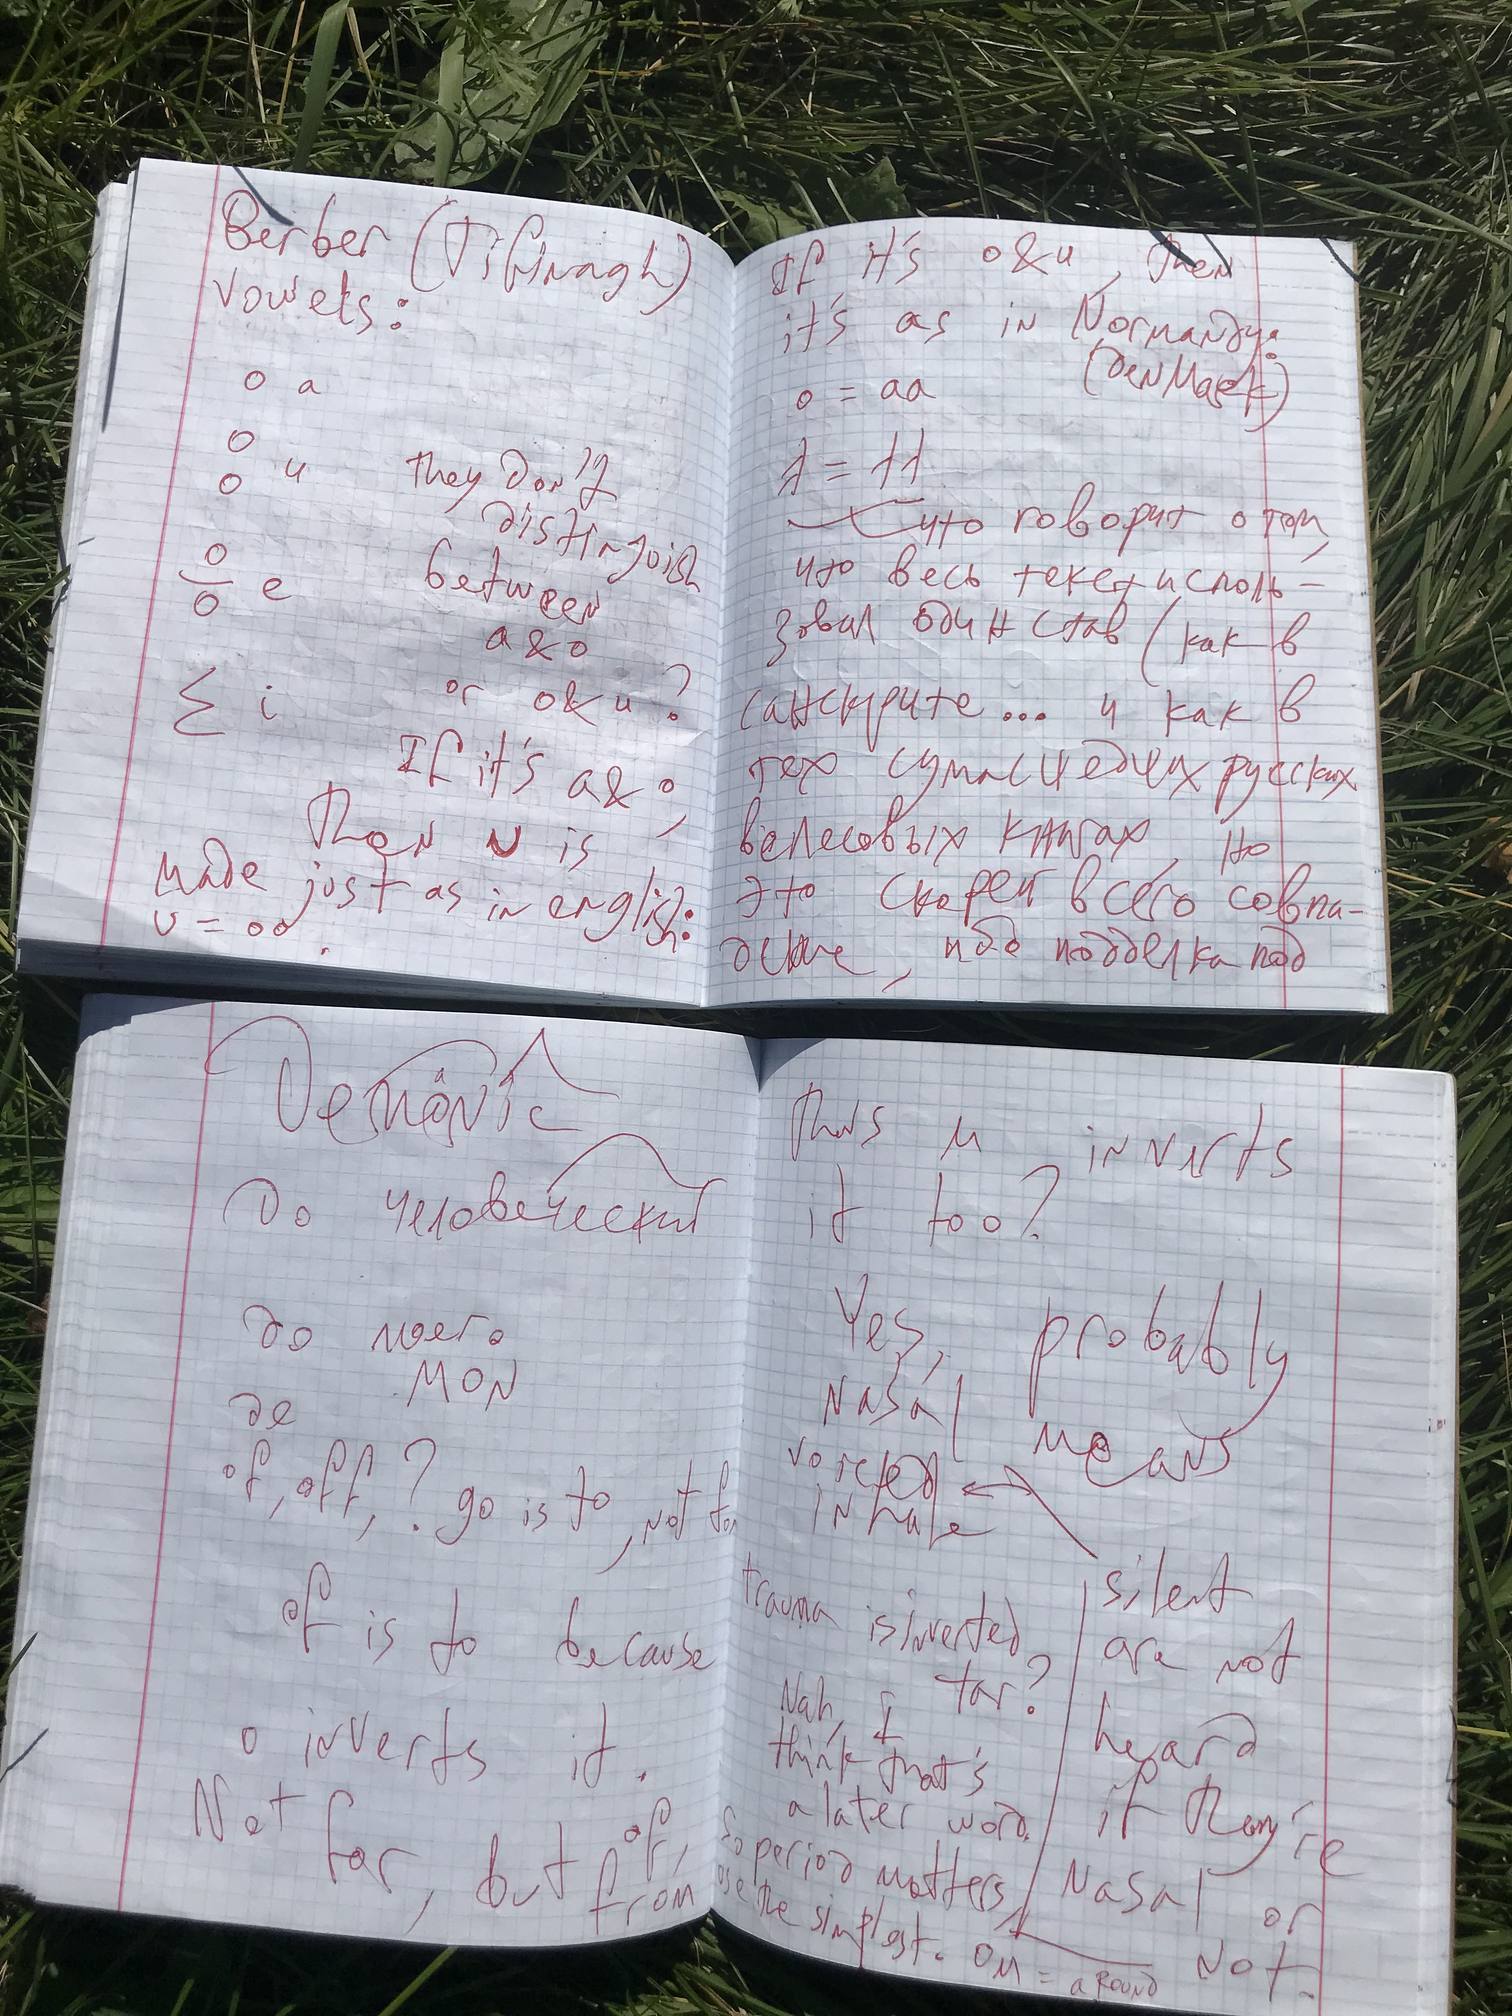 Berber (Tifinagh)
vowels:
o a
o
o u they don't
distinguish
o
o e between
a & o
Σ i or o&u?
If it's a&o,
then u is
made just as in english:
u = oo.
If it's o&u, then
it's as in Normandy:
(Denmark)
o = aa
что говорит о том,
что весь текст исполь-
зовал один став (как в
санскрите... и как в
тех сумасшедших русских
велесовых книгах, но
это скорей всего совпа-
дение, подделка под
Demonic
a
До человеческий
до моего
MON
де
of, off, ? go is to, not
of is to because
o inverts it.
Not far, but of,
from
Thus m inverts
it too?
Yes, probably
Nasal means
voiced
inhale
silent
are not
heard
if they're
nasal or
not.
trauma is inverted
tar?
Nah, I
think that's
a later word.
So period matters,
use the simplest. OM = around